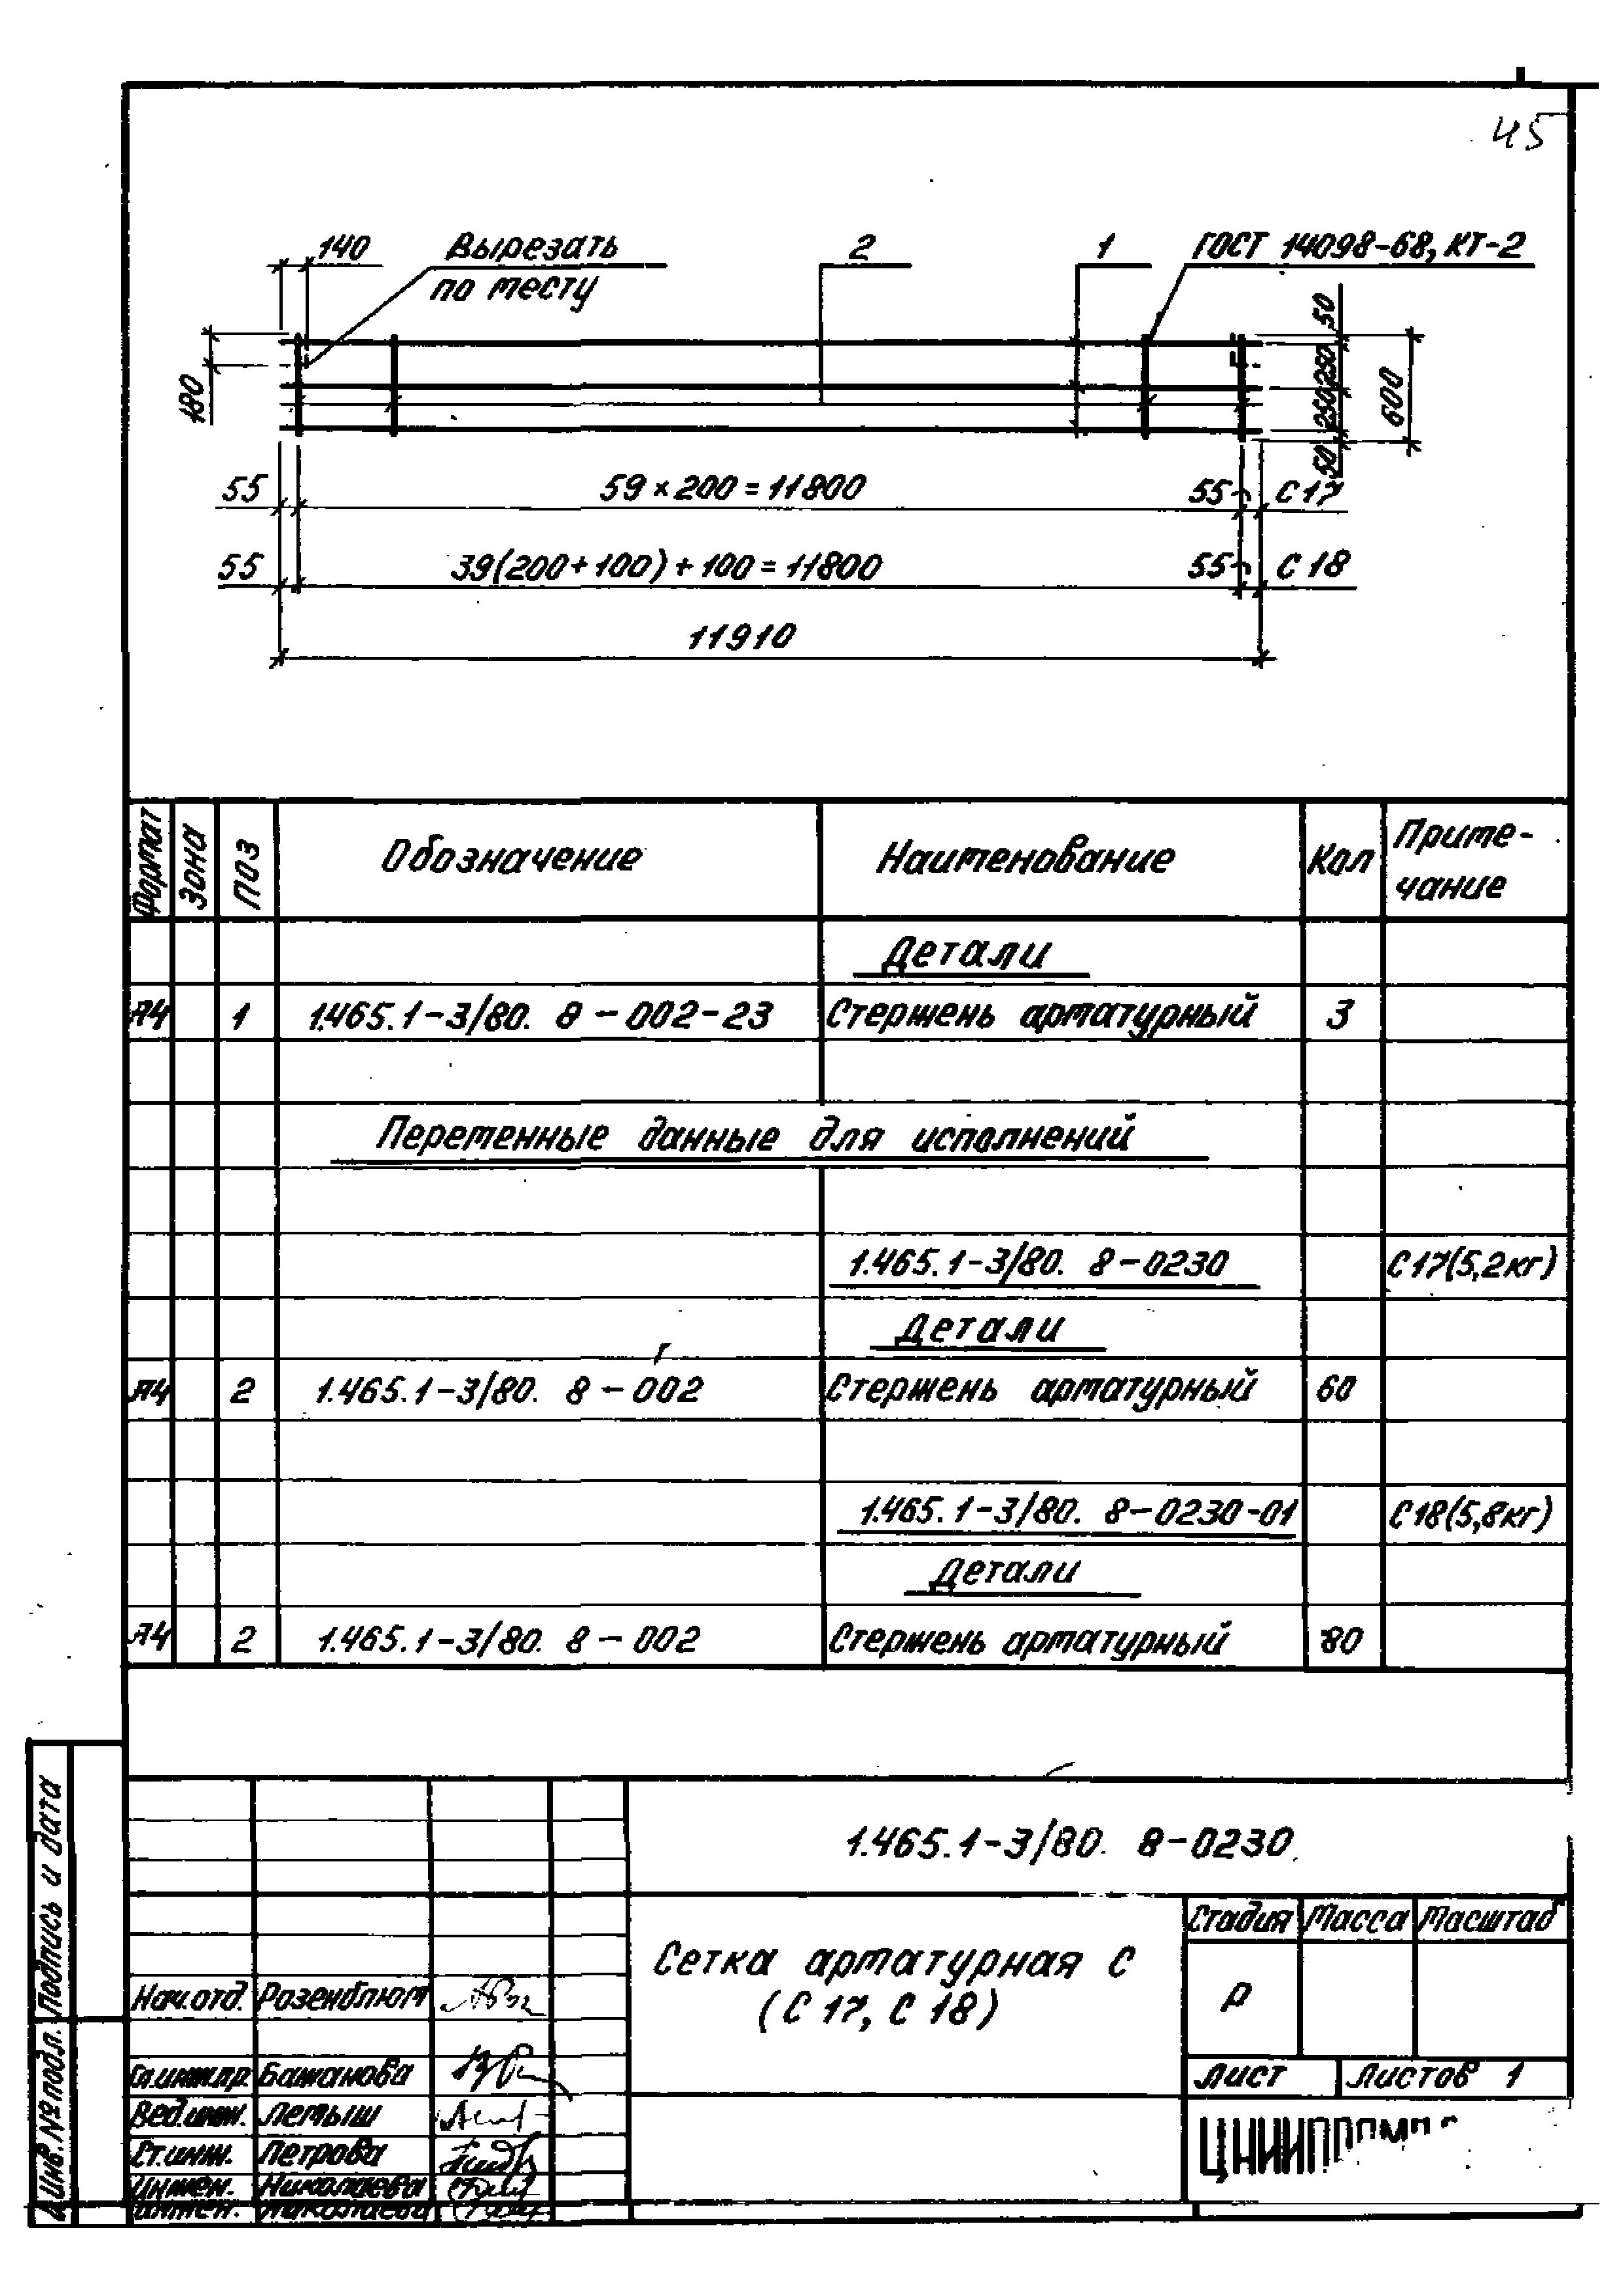 45
140
Вырезать
по месту
2
1
ГОСТ 14098-68, КТ-2
180
50
250
250
50
600
55
59 × 200 = 11800
55
С 17
55
39(200+100)+100=11800
55
С 18
11910
Формат
Зона
Поз
Обозначение
Наименование
Кол
Приме-
чание
Детали
А4 1 1.465.1-3/80. 8-002-23 Стержень арматурный 3
Переменные данные для исполнений
1.465.1-3/80. 8-0230 С17(5,2кг)
Детали
А4 2 1.465.1-3/80. 8-002 Стержень арматурный 60
1.465.1-3/80. 8-0230-01 С18(5,8кг)
Детали
А4 2 1.465.1-3/80. 8-002 Стержень арматурный 80
Подпись и дата
Инв. № подл.
1.465.1-3/80. 8-0230
Сетка арматурная С
(С 17, С 18)
Стадия Масса Масштаб
Р
Лист Листов 1
Нач.отд. Розенблюм
Гл.инж.пр. Бажанова
Вед.инж. Лемыш
Ст.инж. Петрова
Инжен. Николаева
Инжен. Николаева